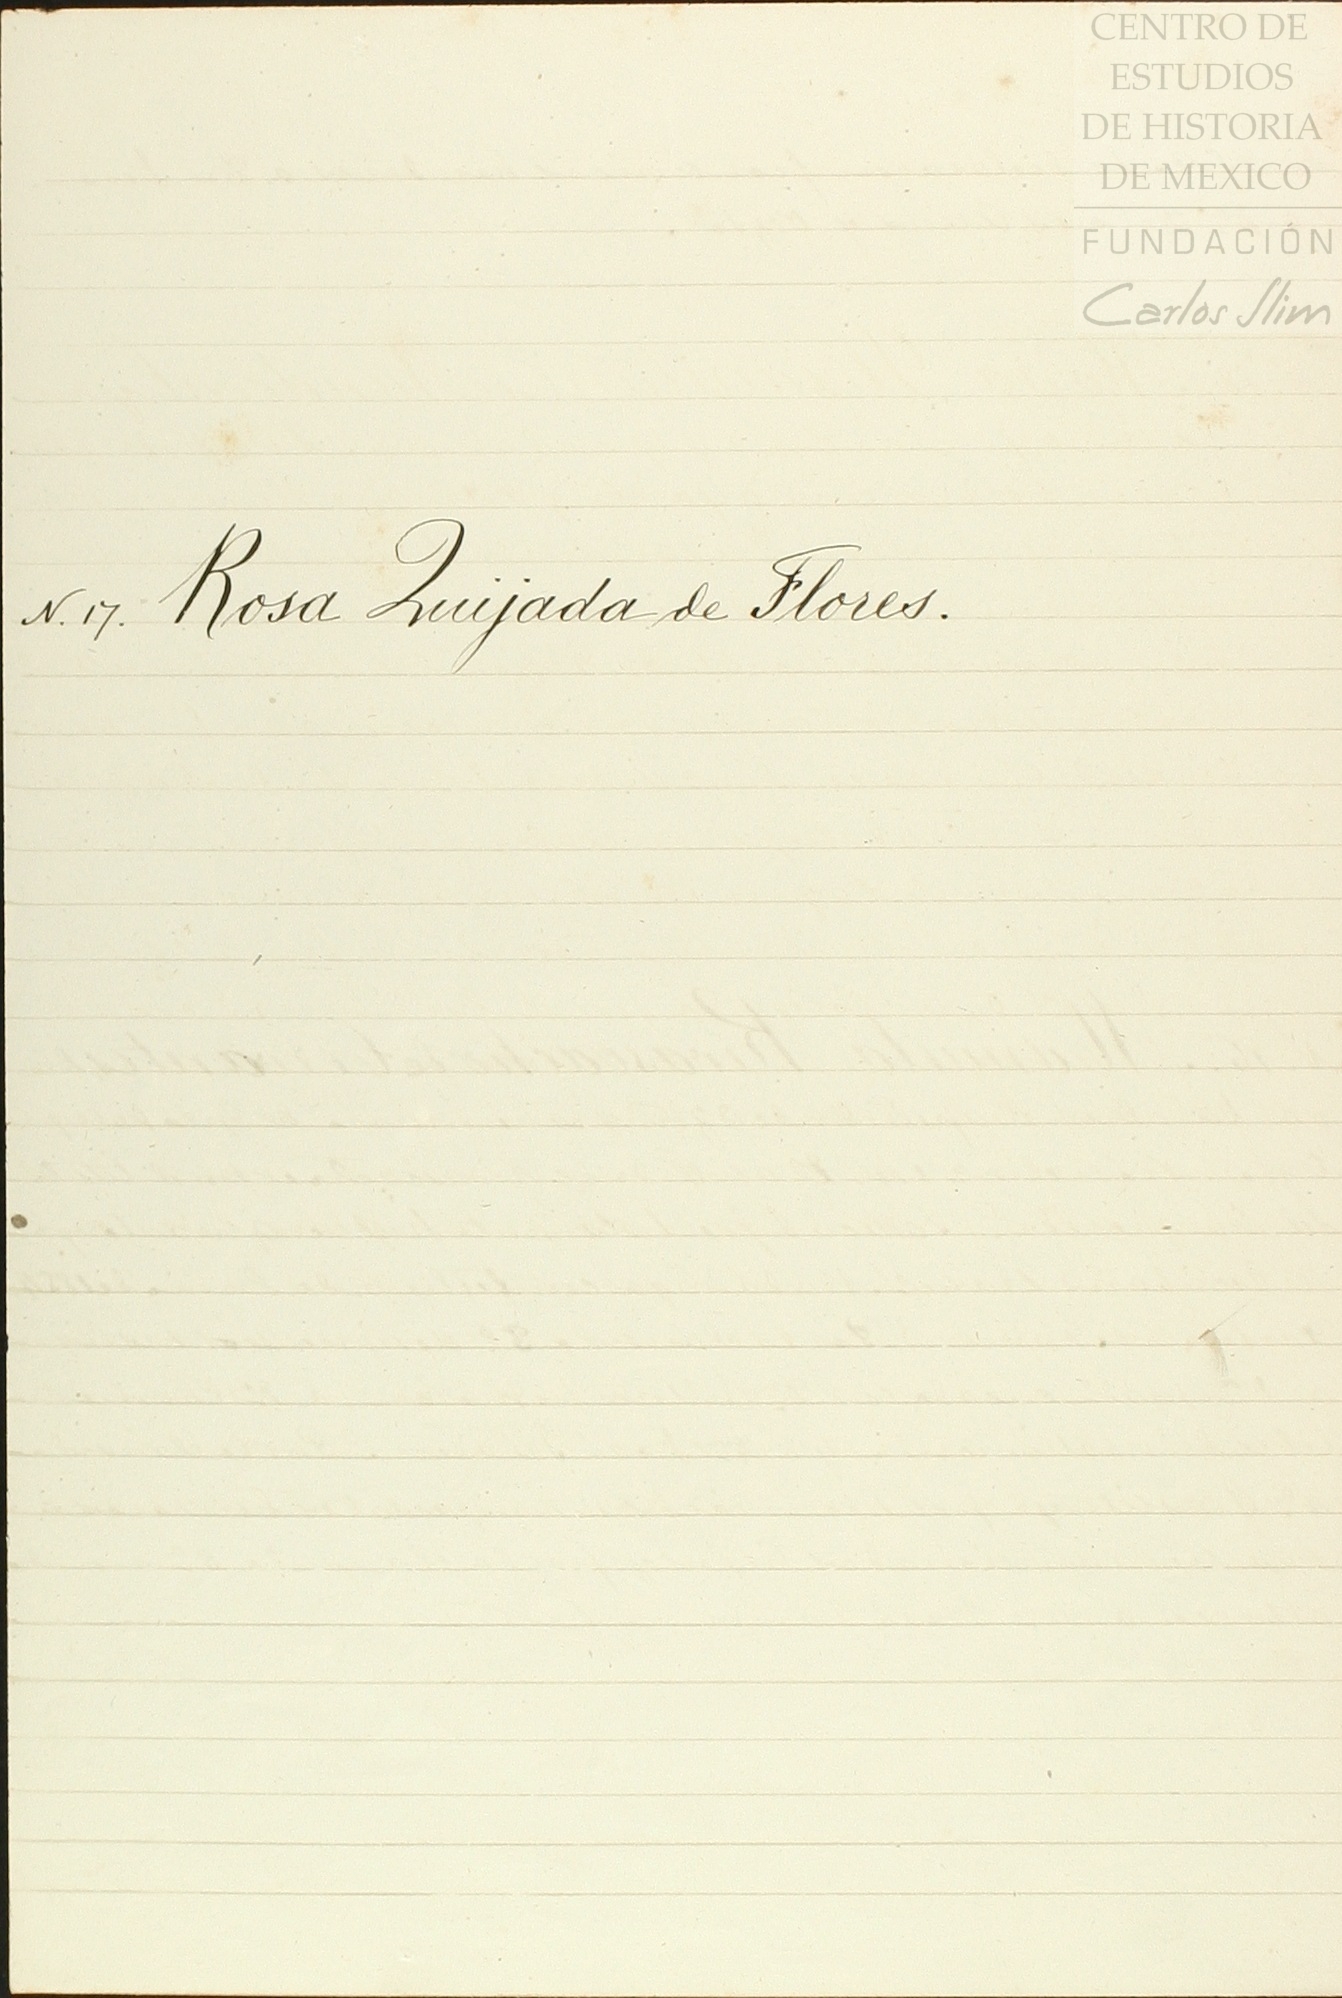 CENTRO DE
ESTUDIOS
DE HISTORIA
DE MEXICO
FUNDACIÓN
Carlos Slim
N. 17. Rosa Quijada de Flores.